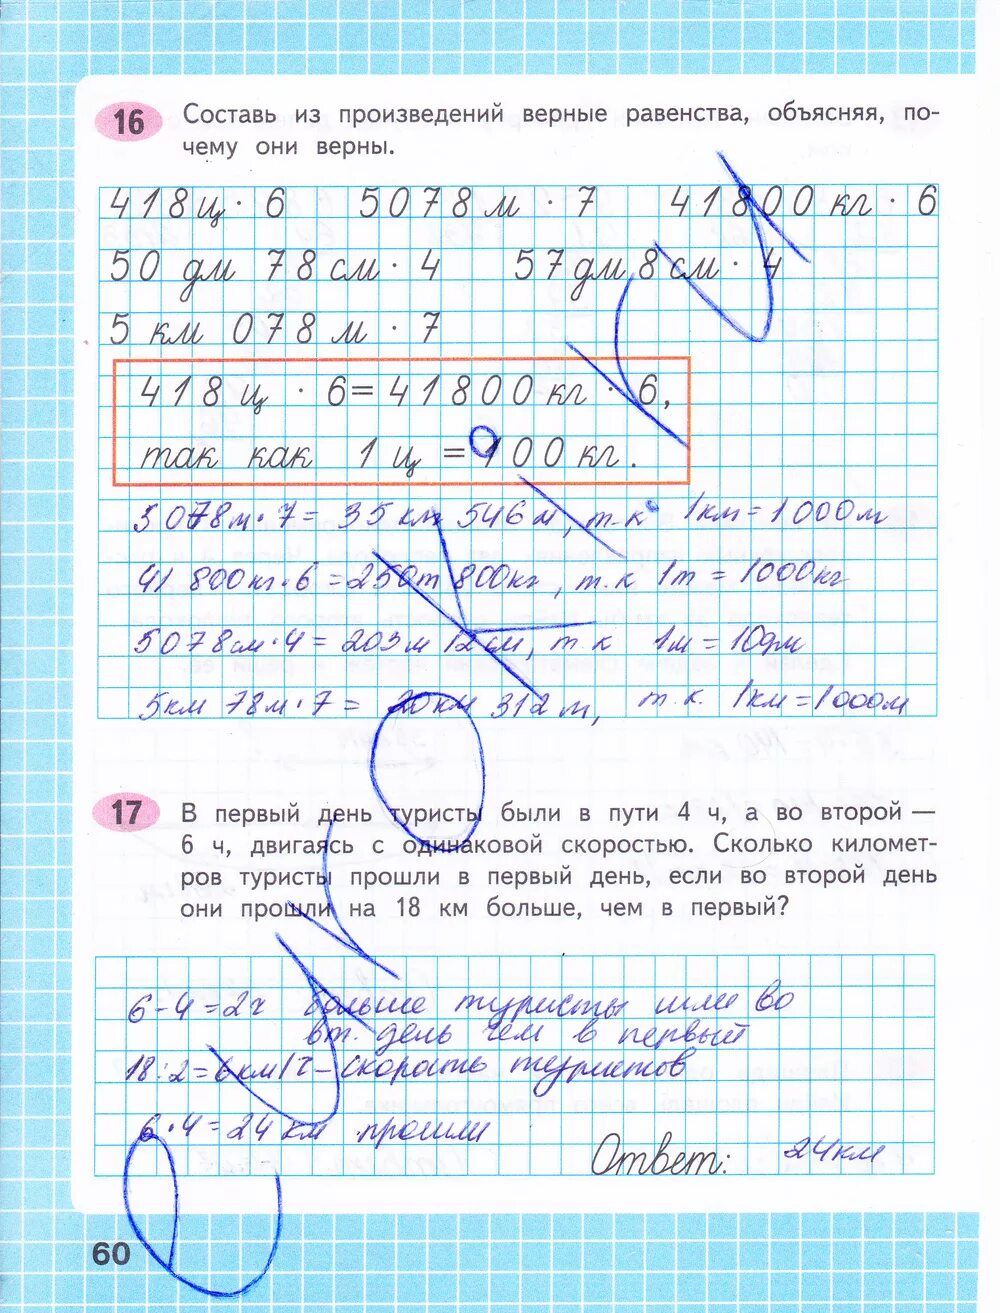 16 Составь из произведений верные равенства, объясняя, по-
чему они верны.
418 ц · 6 5078 м · 7 41800 кг · 6
50 дм 78 см · 4 57 дм 8 см · 4
5 км 078 м · 7
418 ц · 6 = 41800 кг · 6,
так как 1 ц = 100 кг.
5078м · 7 = 35 км 546 м, т.к. 1км = 1000м
41 800кг · 6 = 250т 800кг, т.к 1т = 1000кг
5078см · 4 = 203м 12см, т.к 1м = 10дм
5км 78м · 7 = 20км 312м, т.к. 1км = 1000м
17 В первый день туристы были в пути 4 ч, а во второй —
6 ч, двигаясь с одинаковой скоростью. Сколько километ-
ров туристы прошли в первый день, если во второй день
они прошли на 18 км больше, чем в первый?
6 - 4 = 2ч больше туристы шли во
вт. день чем в первый
18 : 2 = 6км/ч – скорать туристов
6 · 4 = 24 км прошли
Ответ: 24км
60